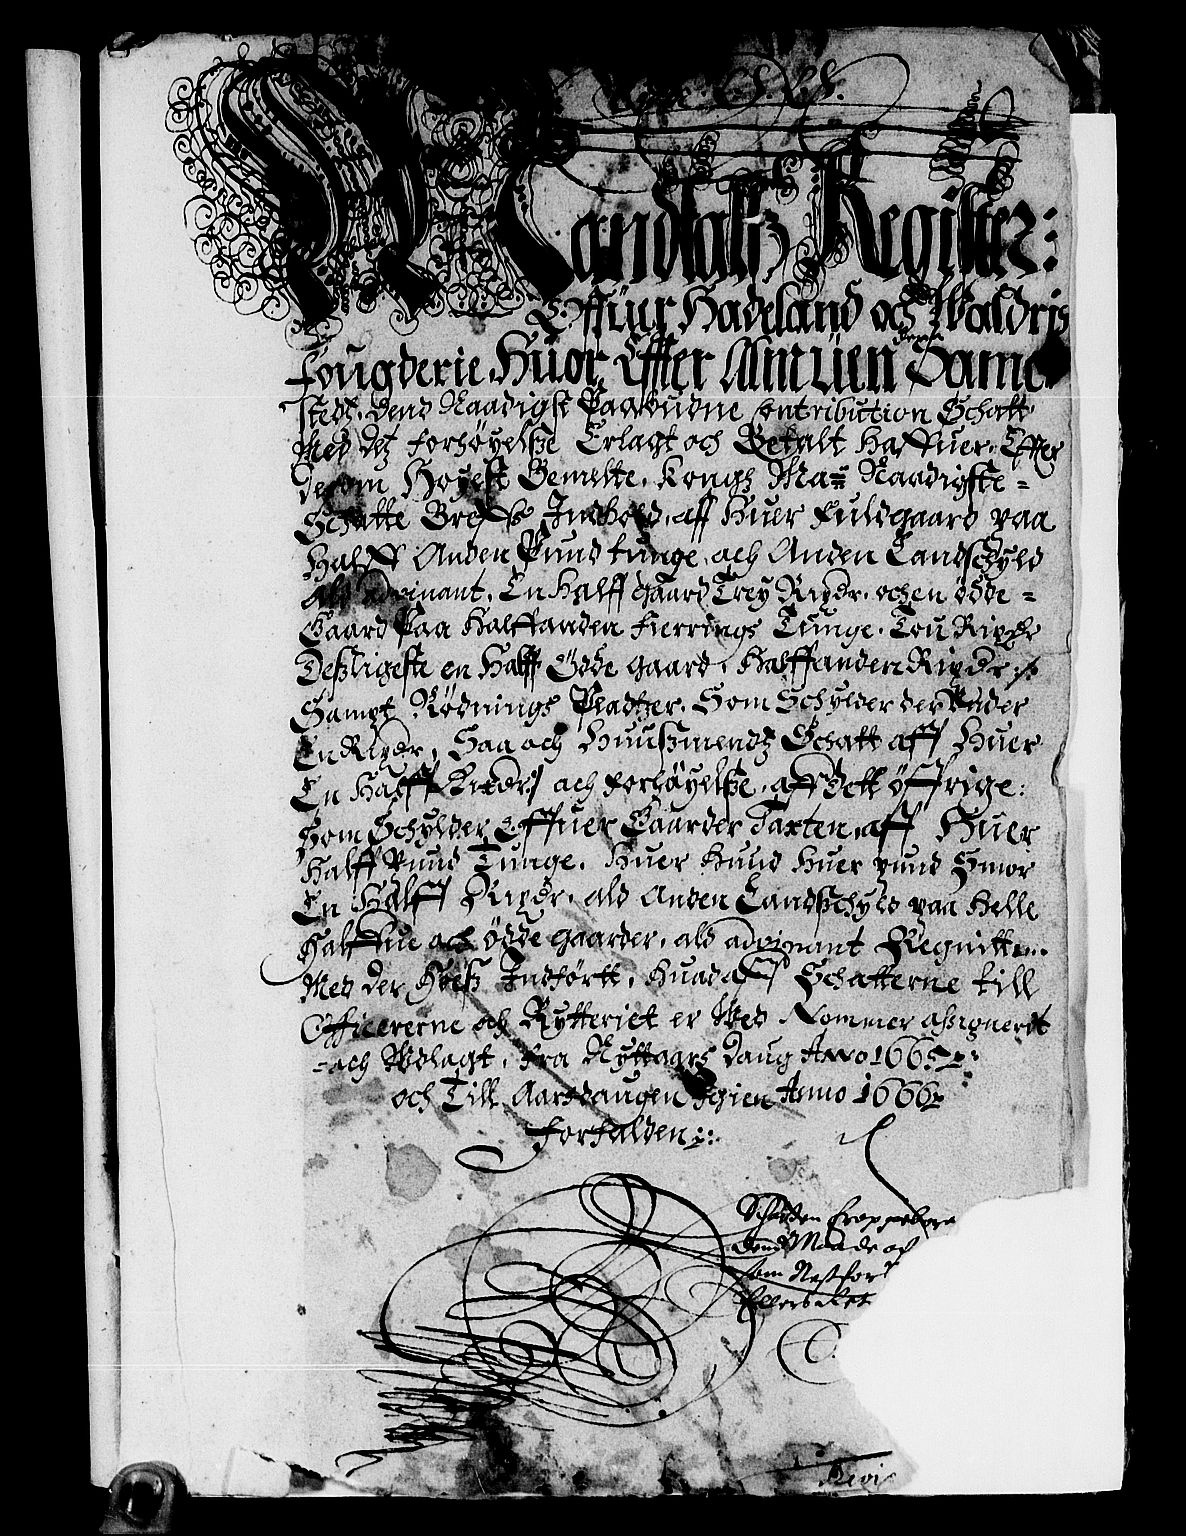 Mandtallz Register:
Offuer Hadeland och Waldris
Fougderie, Huor Effter Almuen der Samme-
stedz, dend Naadigst Paabudne Contribution Schatt
Med ditz forhøyelsze Erlagt och Betalt Haffuer. Effter
derom Høyest Bemelte. Kongl Ma: Naadigste-
Schatte Breffs Indhold, aff Huer Fuldgaard paa
Halff Anden Pund tunge, och Anden Landschyld
Als advinant. En Halff gaard Trey Rixdr. och en øde-
Gaard Paa Halffanden fierrings Tunge. Tou Rixdr
Desligeste en Halff Ödde gaard, Halffanden Rixdr:
Sampt Rödnings Pladtzer. Som Schylder der Under
En Rixdr, Saa och Huuszmendtz Schatt aff Huer
En Halff Rixdr: och forhöyelsze, aff dett öffrige:
Som Schylder Offuer Gaarder Taxten, aff Huer
Halff Pund Tunge. Huer Hund Huer pund Smør
En Halff Rixdr. als Anden Landschyld paa Helle
Halffue och ödde gaarder, als advinant Regnitt
Med der Hosz Indførtt, Huad aff Schatterne till
Officererne och Rytteriet er Wed Nommer assignerit
och Udlagt, fra Nyttaars Daug Anno 1665:
och Till Aarsdaugen Igien Anno 1666
forfalden:
dend Maade
som Nest for
Revi